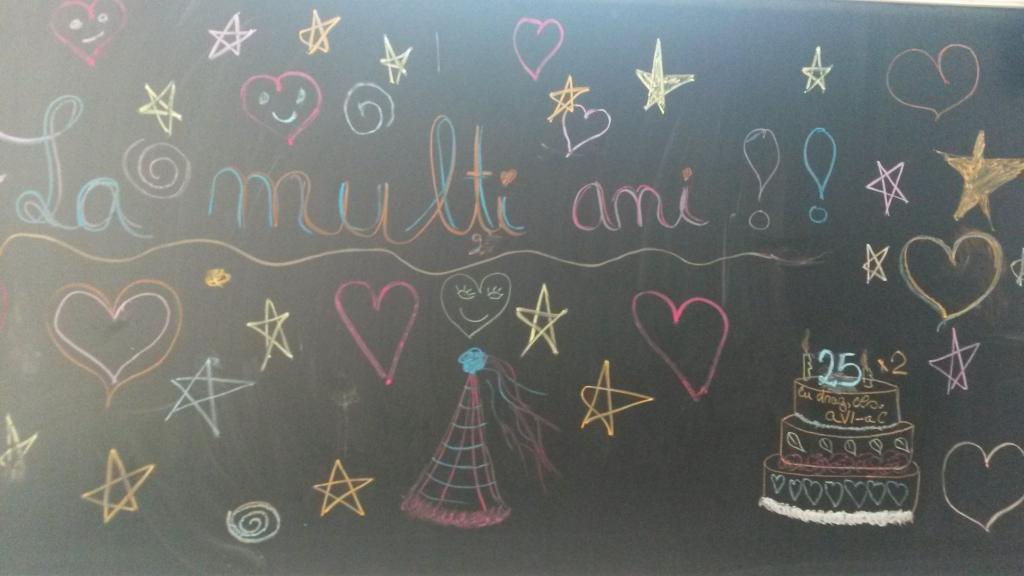 La multi ani !!
25 x2
Cu dragoste,
a VI-a C